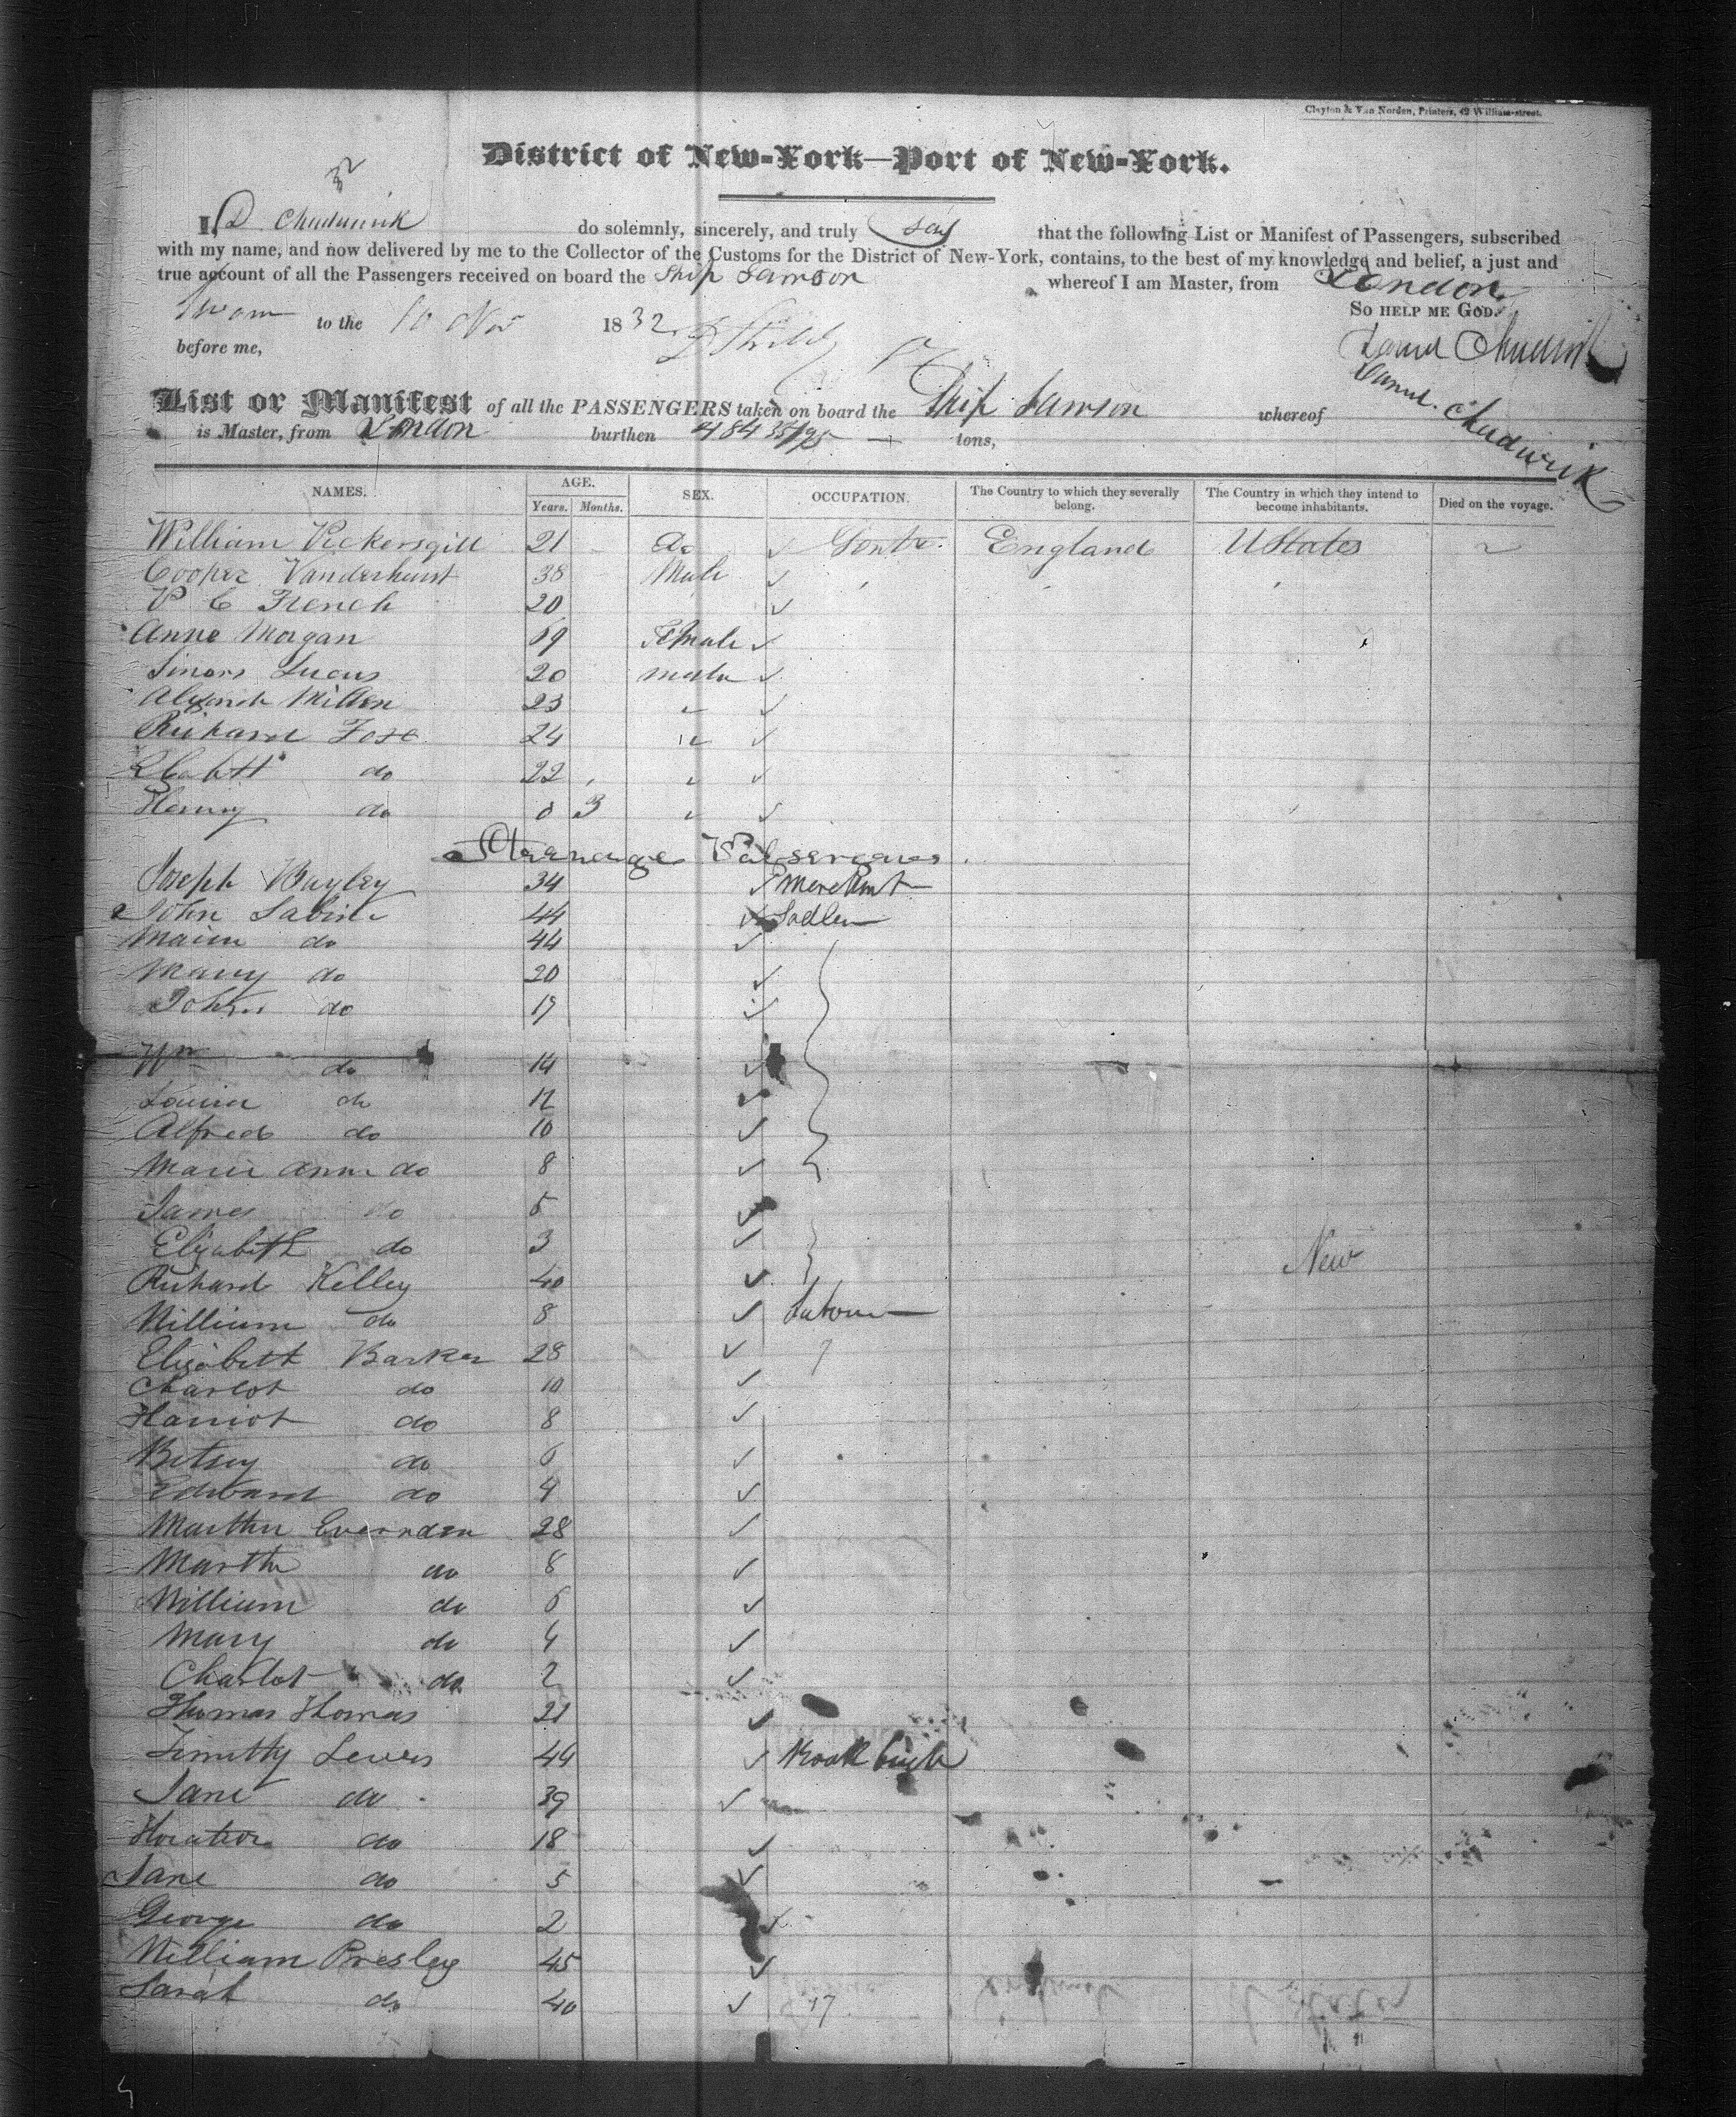 Clayton & Van Norden, Printers, 42 William-street.
District of New-York—Port of New-York.
32
I, D. Chadwick do solemnly, sincerely, and truly say that the following List or Manifest of Passengers, subscribed
with my name, and now delivered by me to the Collector of the Customs for the District of New-York, contains, to the best of my knowledge and belief, a just and
true account of all the Passengers received on board the Ship Samson whereof I am Master, from London
So help me God.
Sworn to the 10 Nov 1832
before me,
Daniel Chadwick
List or Manifest of all the PASSENGERS taken on board the Ship Samson whereof Danl. Chadwick
is Master, from London burthen 484 35/95 tons,
NAMES. AGE. SEX. OCCUPATION. The Country to which they severally belong. The Country in which they intend to become inhabitants. Died on the voyage.
Years. Months.
William Vickersgill 21 England UStates
Cooper Vanderhurst 38 Male
P C French 20
Anne Morgan 19 Female
Simon Lucus 20 male
Alexandr Miller 23 "
Richard Fose 24 "
Elizabtt do 22 "
Henry do 0 3 "
Steerage Passengers
Joseph Bayley 34 Merchant
John Sabine 44 Sadler
Maria do 44
Mary do 20
John do 17
Wm do 14
Louisa do 12
Alfred do 10
Maria Ann do 8
James do 5
Elizabeth do 3
New
Richard Kelley 40
William do 8 Labourer
Elizabett Barker 28
Charlot do 10
Harriot do 8
Betsey do 6
Edward do 4
Martha Evernden 28
Martha do 8
William do 6
Mary do 4
Charlot do 2
Thomas Thomas 21
Timothy Lewis 44
Jane do 39
Horatio do 18
Jane do 5
George do 2
William Presley 45
Sarah do 40